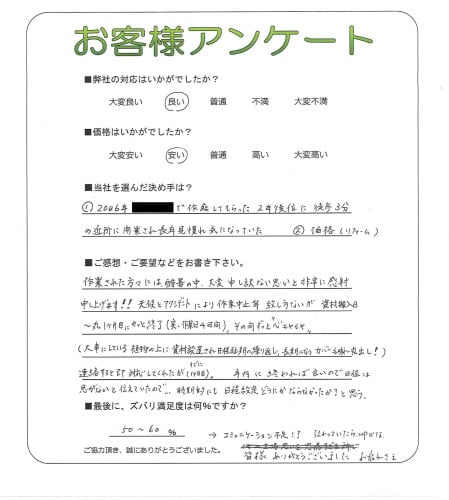 お客様アンケート
■弊社の対応はいかがでしたか？
大変良い 良い 普通 不満 大変不満
■価格はいかがでしたか？
大変安い 安い 普通 高い 大変高い
■当社を選んだ決め手は？
① 2006年 で作庭してもらった 2年後位に 徒歩3分
の近所に開業され長年見慣れ気になっていた ② 価格(リフォーム)
■ご感想・ご要望などをお書き下さい。
作業された方々には酷暑の中、大変申し訳ない思いと非常に感謝
申し上げます!! 天候とアクシデントにより作業中止等 致し方ないが 資材搬入日
〜丸1ヶ月目にやっと終了(実働4日間)。その間ずっと
(大事にしている植物の上に資材放置され日程延期の繰り返し、長期になり カバーも無し丸出し!)
連絡すると即対応してくれたが(14日目)。 年内に終われば良いので日程は
急がないと伝えていたので、時期的にも日程設定どうにかならなかったか？と思う。
■最後に、ズバリ満足度は何％ですか？
50〜60 ％ → コミュニケーション不足!? 伝わっていたら
ご協力頂き、誠にありがとうございました。 皆様 ありがとうございました